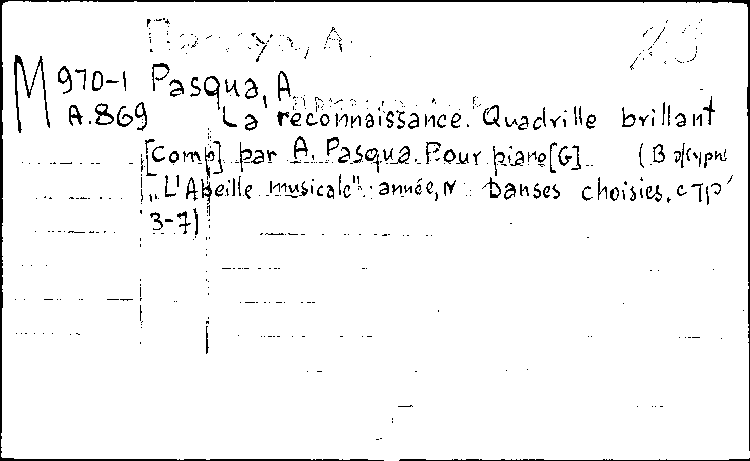 А.
M 970-1 Pasqua, A
A.869 La reconnaissance. Quadrille brillant
[Comp] par A. Pasqua. Pour piane [G] (В журн.
"L'Abeille musicale" année, N Danses choisies. стр.
3-7)